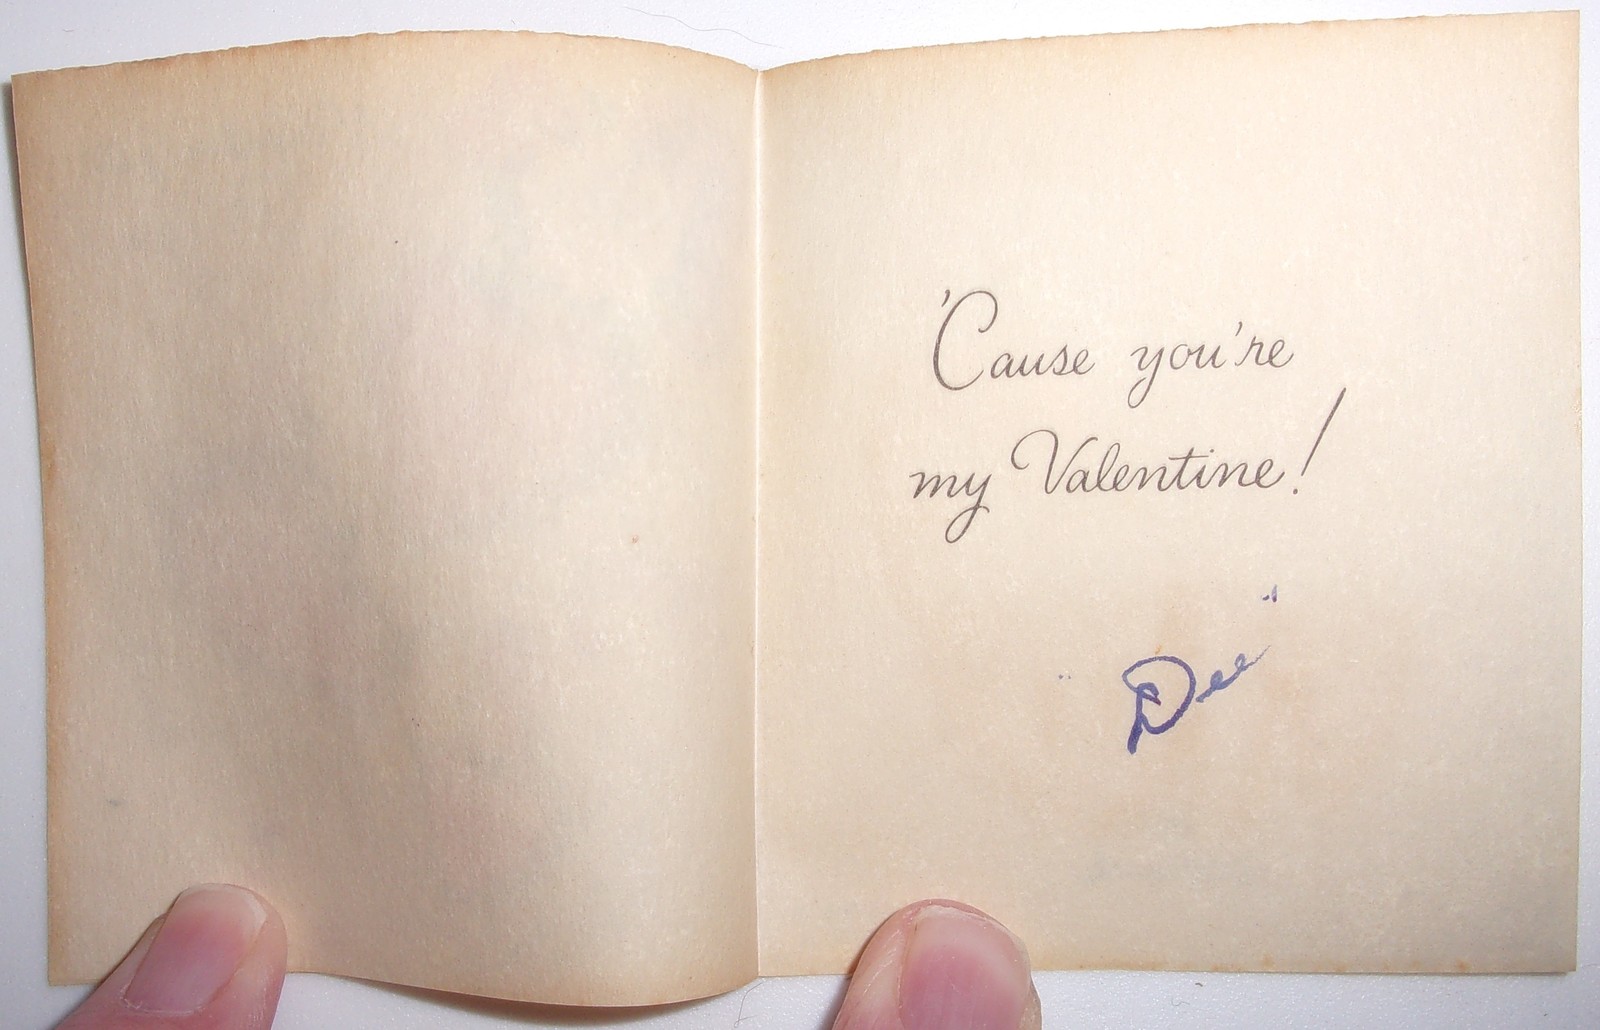 'Cause you're
my Valentine!
"Dee"